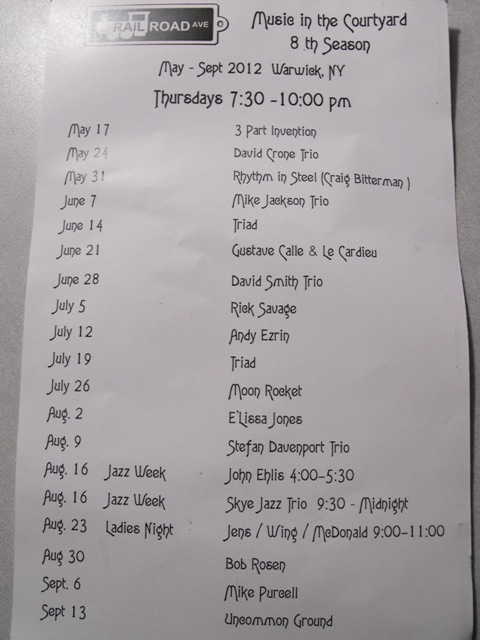 RAILROAD AVE
Music in the Courtyard
8 th Season
May - Sept 2012 Warwick, NY
Thursdays 7:30 -10:00 pm
May 17 3 Part Invention
May 24 David Crone Trio
May 31 Rhythm in Steel (Craig Bitterman )
June 7 Mike Jackson Trio
June 14 Triad
June 21 Gustave Calle & Le Cardieu
June 28 David Smith Trio
July 5 Rick Savage
July 12 Andy Ezrin
July 19 Triad
July 26 Moon Rocket
Aug. 2 E'Lissa Jones
Aug. 9 Stefan Davenport Trio
Aug. 16 Jazz Week John Ehlis 4:00-5:30
Aug. 16 Jazz Week Skye Jazz Trio 9:30 - Midnight
Aug. 23 Ladies Night Jens / Wing / McDonald 9:00-11:00
Aug 30 Bob Rosen
Sept. 6 Mike Purcell
Sept 13 Uncommon Ground